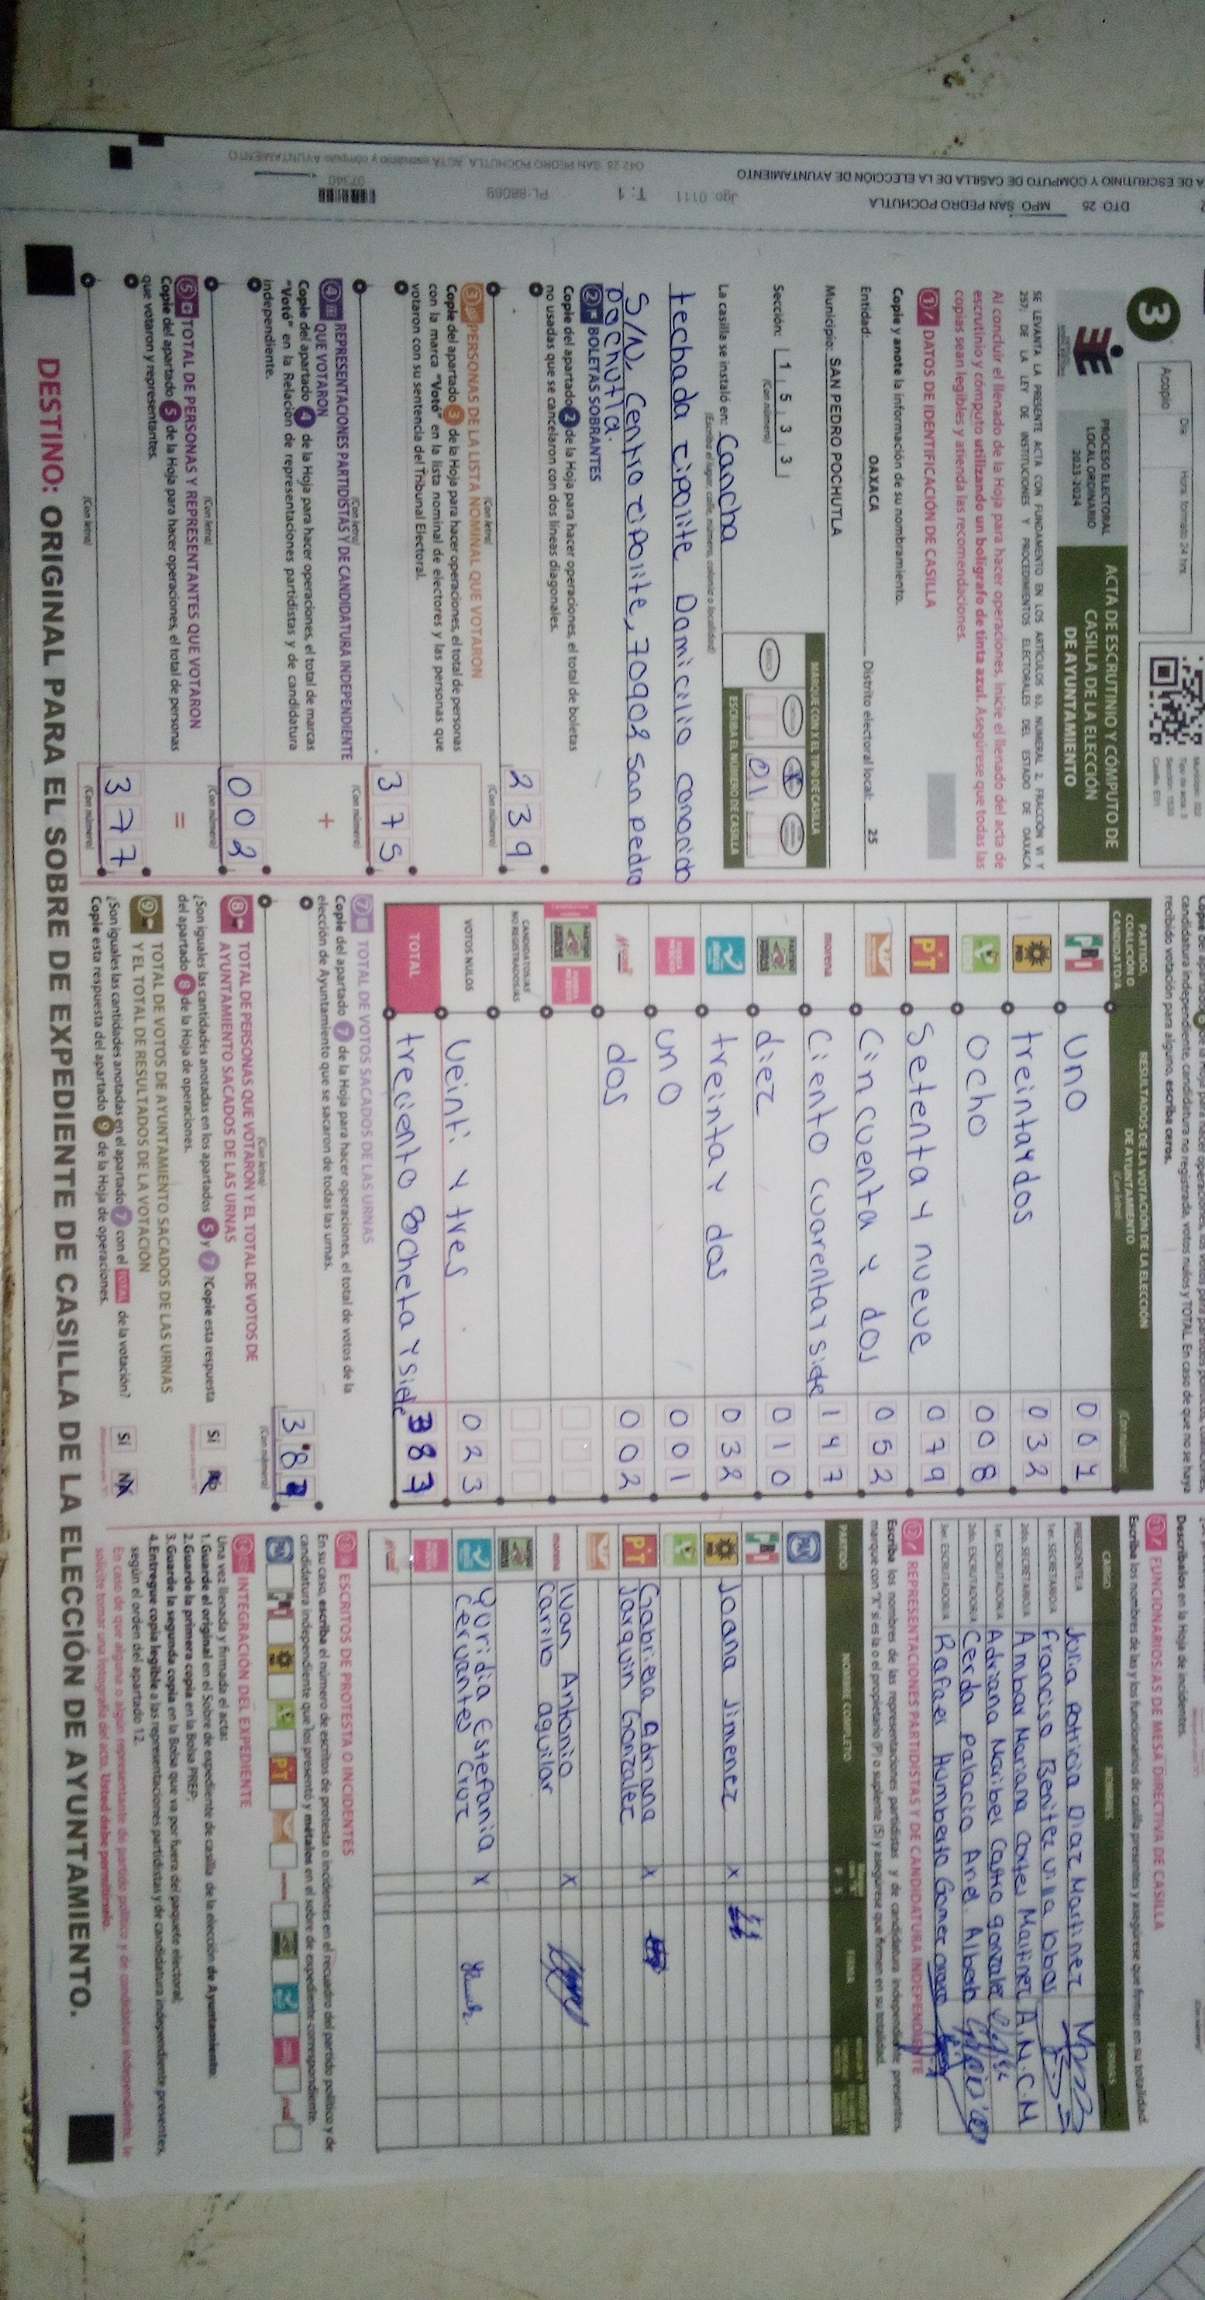 DTO: 25 MPO SAN PEDRO POCHUTLA
A DE ESCRUTINIO Y CÓMPUTO DE CASILLA DE LA ELECCIÓN DE AYUNTAMIENTO
3
Acopio
Día:
Hora: formato 24 hrs.
PROCESO ELECTORAL
LOCAL ORDINARIO
2023-2024
ACTA DE ESCRUTINIO Y CÓMPUTO DE
CASILLA DE LA ELECCIÓN
DE AYUNTAMIENTO
SE LEVANTA LA PRESENTE ACTA CON FUNDAMENTO EN LOS ARTÍCULOS 63, NUMERAL 2, FRACCIÓN VI Y
257; DE LA LEY DE INSTITUCIONES Y PROCEDIMIENTOS ELECTORALES DEL ESTADO DE OAXACA
Al concluir el llenado de la Hoja para hacer operaciones, inicie el llenado del acta de
escrutinio y cómputo utilizando un bolígrafo de tinta azul. Asegúrese que todas las
copias sean legibles y atienda las recomendaciones.
1 DATOS DE IDENTIFICACIÓN DE CASILLA
Copie y anote la información de su nombramiento.
Entidad: OAXACA Distrito electoral local: 25
Municipio: SAN PEDRO POCHUTLA
MARQUE CON X EL TIPO DE CASILLA
Sección: 1 5 3 3
(Con número)
01
ESCRIBA EL NÚMERO DE CASILLA
La casilla se instaló en: Cancha
(Escriba el lugar, calle, número, colonia o localidad)
techada zipolite Domicilio conocido
S/N, Centro zipolite, 70902 san pedro
pochutla.
2 BOLETAS SOBRANTES
Copie del apartado 2 de la Hoja para hacer operaciones, el total de boletas
no usadas que se cancelaron con dos líneas diagonales.
239
(Con letra) (Con número)
3 PERSONAS DE LA LISTA NOMINAL QUE VOTARON
Copie del apartado 3 de la Hoja para hacer operaciones, el total de personas
con la marca "Votó" en la lista nominal de electores y las personas que
votaron con su sentencia del Tribunal Electoral.
375
(Con letra) (Con número)
4 REPRESENTACIONES PARTIDISTAS Y DE CANDIDATURA INDEPENDIENTE
QUE VOTARON +
Copie del apartado 4 de la Hoja para hacer operaciones, el total de marcas
"Votó" en la Relación de representaciones partidistas y de candidatura
independiente.
002
(Con letra) (Con número)
5 TOTAL DE PERSONAS Y REPRESENTANTES QUE VOTARON =
Copie del apartado 5 de la Hoja para hacer operaciones, el total de personas
que votaron y representantes.
377
(Con letra) (Con número)
recibido votación para alguno, escriba ceros.
PARTIDO,
COALICIÓN O
CANDIDATO/A
RESULTADOS DE LA VOTACIÓN DE LA ELECCIÓN
DE AYUNTAMIENTO
(Con letra) (Con número)
PRI Uno 001
PRD treintaydos 032
ocho 008
PT Setenta y nueve 079
Cincuenta y dos 052
morena Ciento cuarentay siete 147
diez 010
treintay dos 032
uno 001
dos 002
CANDIDATOS/AS
NO REGISTRADOS/AS
VOTOS NULOS Veinti y tres 023
TOTAL treciento ocheta y siete 387
7 TOTAL DE VOTOS SACADOS DE LAS URNAS
Copie del apartado 7 de la Hoja para hacer operaciones, el total de votos de la
elección de Ayuntamiento que se sacaron de todas las urnas.
387
(Con letra) (Con número)
8 TOTAL DE PERSONAS QUE VOTARON Y EL TOTAL DE VOTOS DE
AYUNTAMIENTO SACADOS DE LAS URNAS
¿Son iguales las cantidades anotadas en los apartados 5 y 7 ?Copie esta respuesta
del apartado 8 de la Hoja de operaciones.
Sí
9 TOTAL DE VOTOS DE AYUNTAMIENTO SACADOS DE LAS URNAS
Y EL TOTAL DE RESULTADOS DE LA VOTACIÓN
¿Son iguales las cantidades anotadas en el apartado 7 con el TOTAL de la votación?
Copie esta respuesta del apartado 9 de la Hoja de operaciones.
Sí
Descríbalos en la Hoja de incidentes.
FUNCIONARIOS/AS DE MESA DIRECTIVA DE CASILLA
Escriba los nombres de las y los funcionarios de casilla presentes y asegúrese que firmen en su totalidad.
CARGO NOMBRES FIRMAS
PRESIDENTE/A Julia Patricia Diaz Martinez
1er. SECRETARIO/A Francisco Benitez Villa lobos
2do. SECRETARIO/A Ambar Mariana Cortes Martinez A.M.C.M
1er. ESCRUTADOR/A Adriana Maribel Castro gonzalez
2do. ESCRUTADOR/A Cerda Palacio Ariel Alberto
3er. ESCRUTADOR/A Rafael Humberto Gomez
REPRESENTACIONES PARTIDISTAS Y DE CANDIDATURA INDEPENDIENTE
Escriba los nombres de las representaciones partidistas y de candidatura independiente presentes,
marque con "X" si es la o el propietario (P) o suplente (S) y asegúrese que firmen en su totalidad.
PARTIDO NOMBRE COMPLETO P S FIRMA
PAN
PRI
PRD Joana Jimenez X
PT Gabriela Adriana X
Joaquin Gonzalez
morena Ivan Antonio X
Carrillo aguilar
Yuridia Estefania X
Cervantes Cruz
ESCRITOS DE PROTESTA O INCIDENTES
En su caso, escriba el número de escritos de protesta o incidentes en el recuadro del partido político y de
candidatura independiente que los presentó y métalos en el sobre de expediente correspondiente.
INTEGRACIÓN DEL EXPEDIENTE
Una vez llenada y firmada el acta:
1.Guarde el original en el Sobre de expediente de casilla de la elección de Ayuntamiento;
2.Guarde la primera copia en la Bolsa PREP;
3.Guarde la segunda copia en la Bolsa que va por fuera del paquete electoral;
4.Entregue copia legible a las representaciones partidistas y de candidatura independiente presentes,
según el orden del apartado 12.
En caso de que alguna o algún representante de partido político y de candidatura independiente, le
solicite tomar una fotografía del acta. Usted debe permitírselo.
DESTINO: ORIGINAL PARA EL SOBRE DE EXPEDIENTE DE CASILLA DE LA ELECCIÓN DE AYUNTAMIENTO.